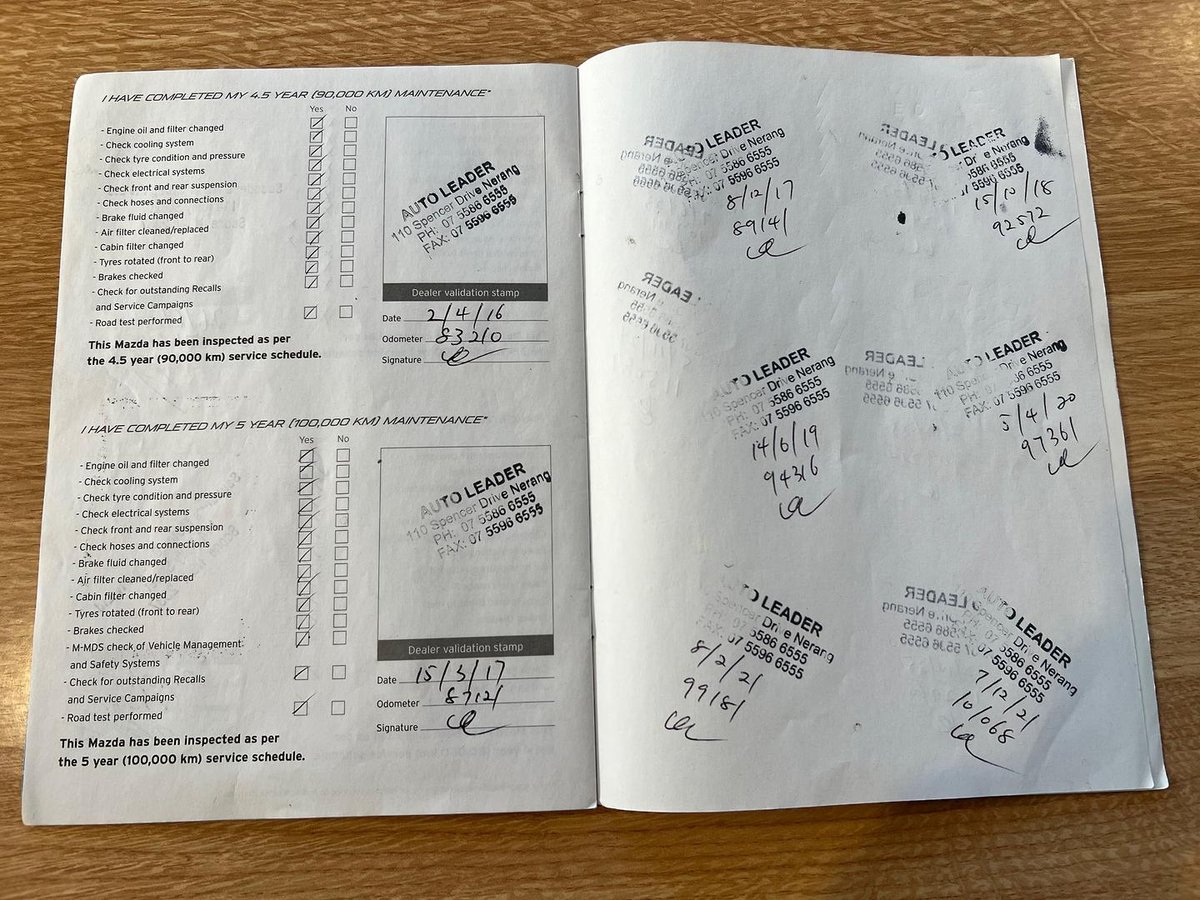 I HAVE COMPLETED MY 4.5 YEAR (90,000 KM) MAINTENANCE*
Yes No
- Engine oil and filter changed
- Check cooling system
- Check tyre condition and pressure
- Check electrical systems
- Check front and rear suspension
- Check hoses and connections
- Brake fluid changed
- Air filter cleaned/replaced
- Cabin filter changed
- Tyres rotated (front to rear)
- Brakes checked
- Check for outstanding Recalls
and Service Campaigns
- Road test performed
This Mazda has been inspected as per
the 4.5 year (90,000 km) service schedule.
AUTO LEADER
110 Spencer Drive Nerang
PH: 07 5586 6555
FAX: 07 5596 6555
Dealer validation stamp
Date 2/4/16
Odometer 83210
Signature
I HAVE COMPLETED MY 5 YEAR (100,000 KM) MAINTENANCE*
Yes No
- Engine oil and filter changed
- Check cooling system
- Check tyre condition and pressure
- Check electrical systems
- Check front and rear suspension
- Check hoses and connections
- Brake fluid changed
- Air filter cleaned/replaced
- Cabin filter changed
- Tyres rotated (front to rear)
- Brakes checked
- M-MDS check of Vehicle Management
and Safety Systems
- Check for outstanding Recalls
and Service Campaigns
- Road test performed
This Mazda has been inspected as per
the 5 year (100,000 km) service schedule.
AUTO LEADER
110 Spencer Drive Nerang
PH: 07 5586 6555
FAX: 07 5596 6555
Dealer validation stamp
Date 15/3/17
Odometer 87121
Signature
LEADER
Spencer Drive Nerang
07 5586 6555
07 5596 6555
8/12/17
89141
LEADER
Drive Nerang
5586 6555
07 5596 6555
15/10/18
92572
AUTO LEADER
110 Spencer Drive Nerang
PH: 07 5586 6555
FAX: 07 5596 6555
14/6/19
94316
AUTO LEADER
110 Spencer Drive Nerang
PH: 5586 6555
FAX: 07 5596 6555
5/4/20
97361
TO LEADER
Spencer Drive Nerang
07 5586 6555
07 5596 6555
8/2/21
99181
AUTO LEADER
Spencer Drive Nerang
PH: 07 5586 6555
07 5596 6555
7/12/21
10/068